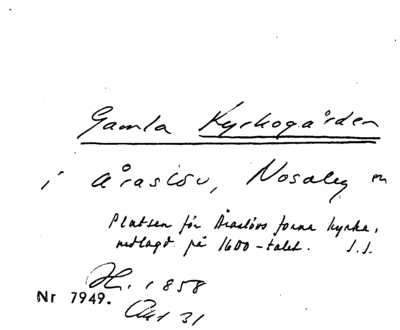 Gamla Kyrkogården
i Åraslöv, Nosaby sn
Platsen för Åraslövs forna kyrka,
nedlagd på 1600-talet. J.J.
H. 1858
Nr 7949.
Akt 31